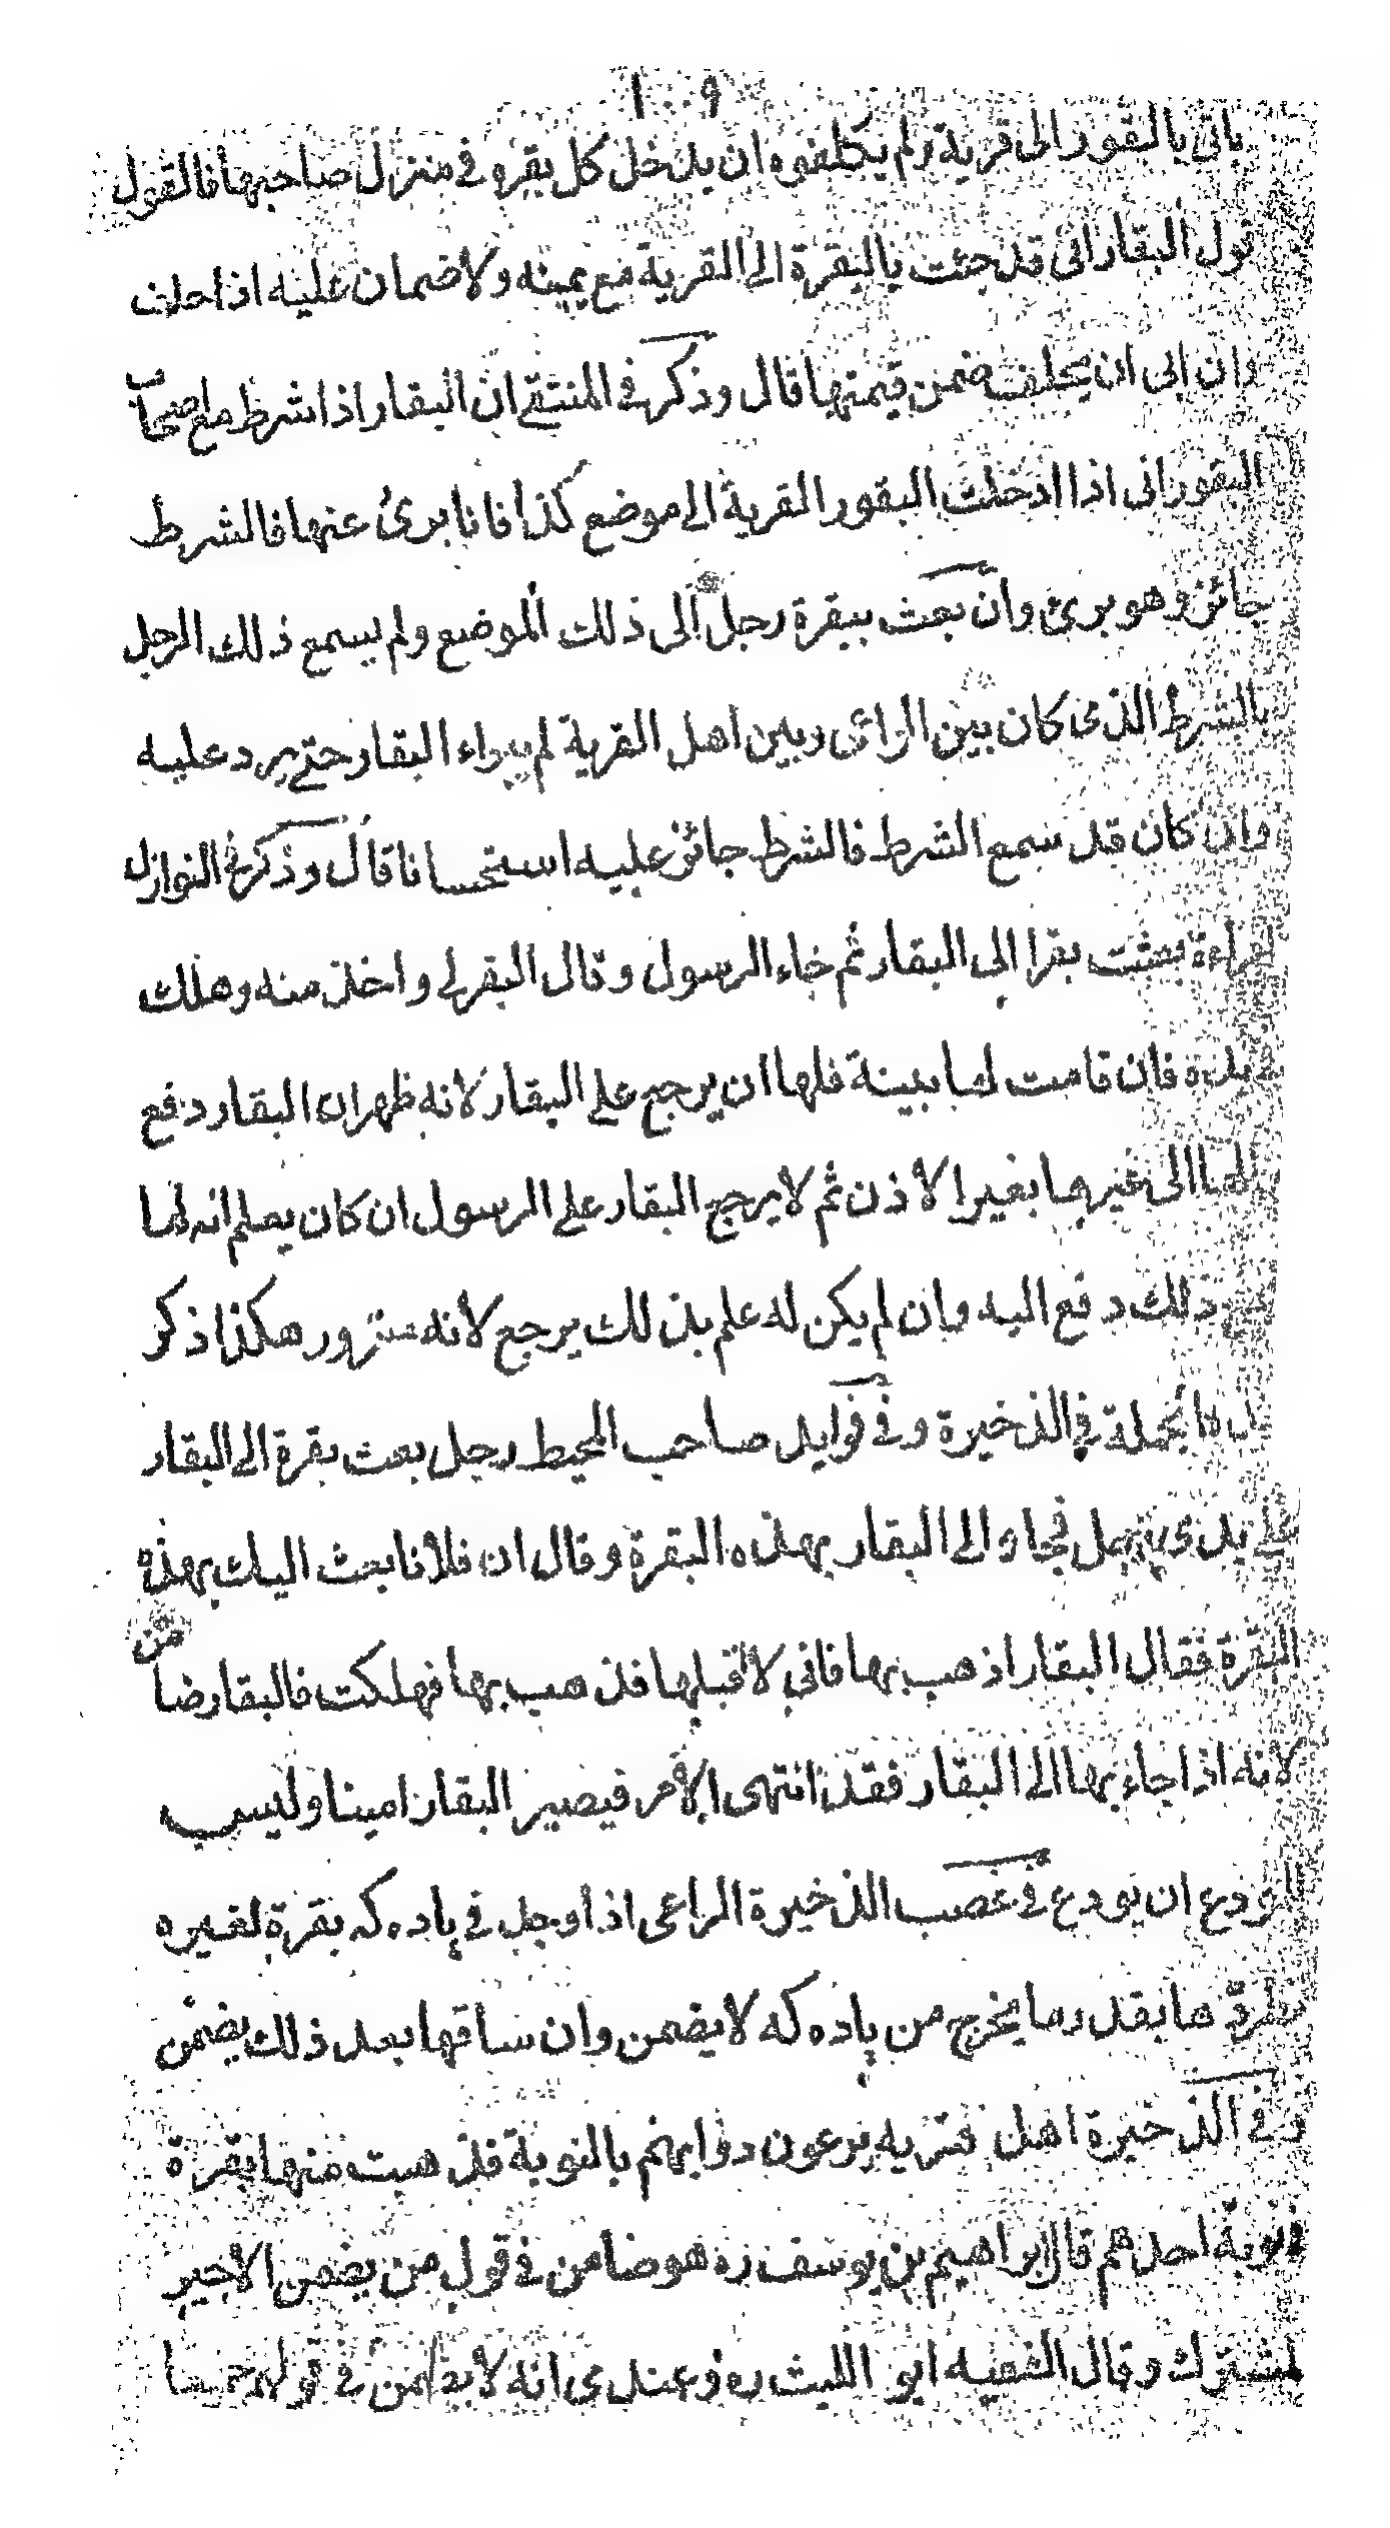 ياتى بالبقور الى قرية ولم يكلفوه ان يدخل كل بقره في منزل صاحبها فالقول
قول البقار انى قد جئت بالبقرة الى القرية مع يمينه ولا ضمان عليه اذا حلف
وان ابى ان يحلف ضمن قيمتها قال وذكر في المنتقى ان البقار اذا شرط مع اصحاب
البقور انى اذا ادخلت البقور القرية الى موضع كذا فانا برئ عنها فالشرط
جائز وهو برئ وان بعث ببقرة رجل الى ذلك الموضع ولم يسمع ذلك الرجل
بالشرط الذى كان بين الراعى وبين اهل القرية لم يبراء البقار حتى يرد عليه
وان كان قد سمع الشرط فالشرط جائز عليه استحسانا قال وذكر في النوازل
امراءة بعثت بقرا الى البقار ثم جاء الرسول وقال البقر لي واخذ منه وهلك
بيده فان قامت لها بينة فلها ان يرجع على البقار لانه ظهر ان البقار دفع
الى غيرها بغير الاذن ثم لا يرجع البقار على الرسول ان كان يعلم انه لها
ذلك دفع اليه وان لم يكن له علم بذلك يرجع لانه مغرور هكذا ذكر
الجملة في الذخيرة وفي فوايد صاحب المحيط رجل بعث بقرة الى البقار
على يدى رجل فجاء الى البقار بهذه البقرة وقال ان فلانا بعث اليك بهذه
البقرة فقال البقار اذهب بها فاني لا اقبلها فذهب بها فهلكت فالبقار ضامن
لانه اذا جاء بها الى البقار فقد انتهى الامر فيصير البقار امينا وليس
للمودع ان يودع في غصب الذخيرة الراعى اذا وجد في پاده كه بقرة لغيره
فطردها بقدر ما يخرج من پاده كه لا يضمن وان ساقها بعد ذلك يضمن
وفي الذخيرة اهل قريه يرعون دوابهم بالنوبة فذهبت منها بقرة
في نوبة احدهم قال ابراهيم بن يوسف ره هو ضامن في قول من يضمن الاجير
المشترك وقال الفقيه ابو الليث ره وعندى انه لا يضمن في قولهم جميعا